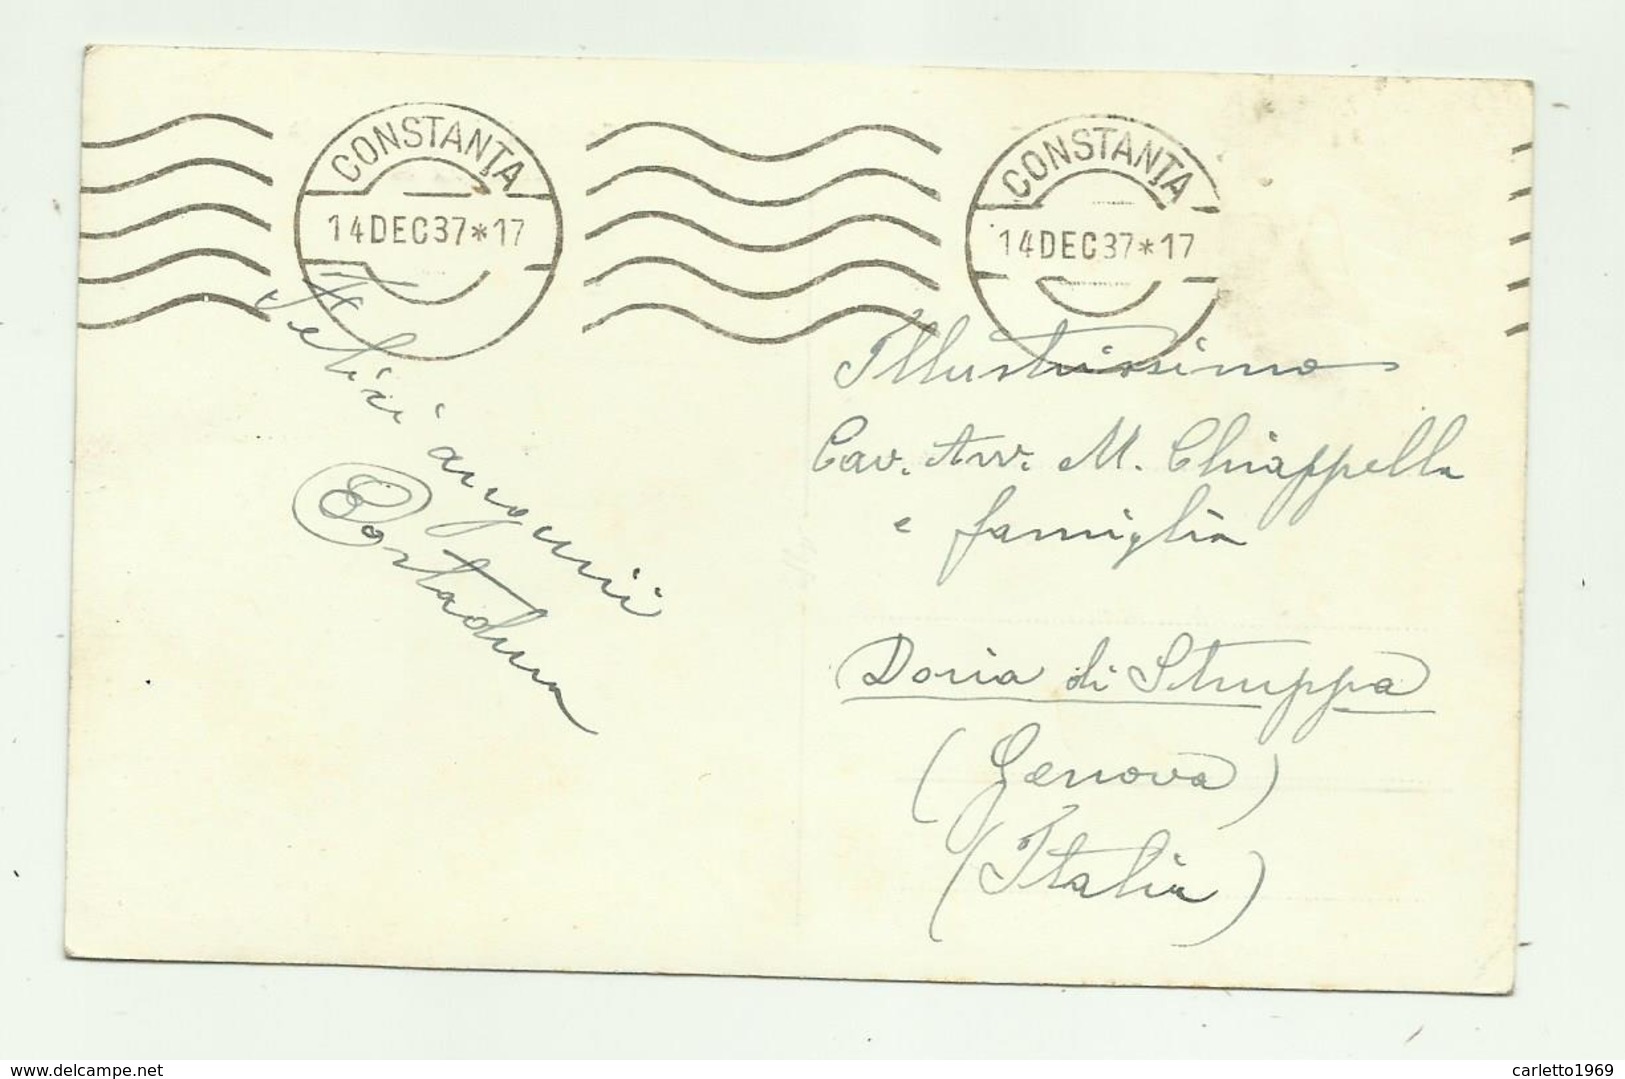 CONSTANȚA
14DEC37*17
CONSTANȚA
14DEC37*17
Felici auguri
Costadura
Illustrissimo
Cav. Avv. M. Chiappella
e famiglia
Doria di Struppa
(Genova)
(Italia)
www.delcampe.net
carletto1969